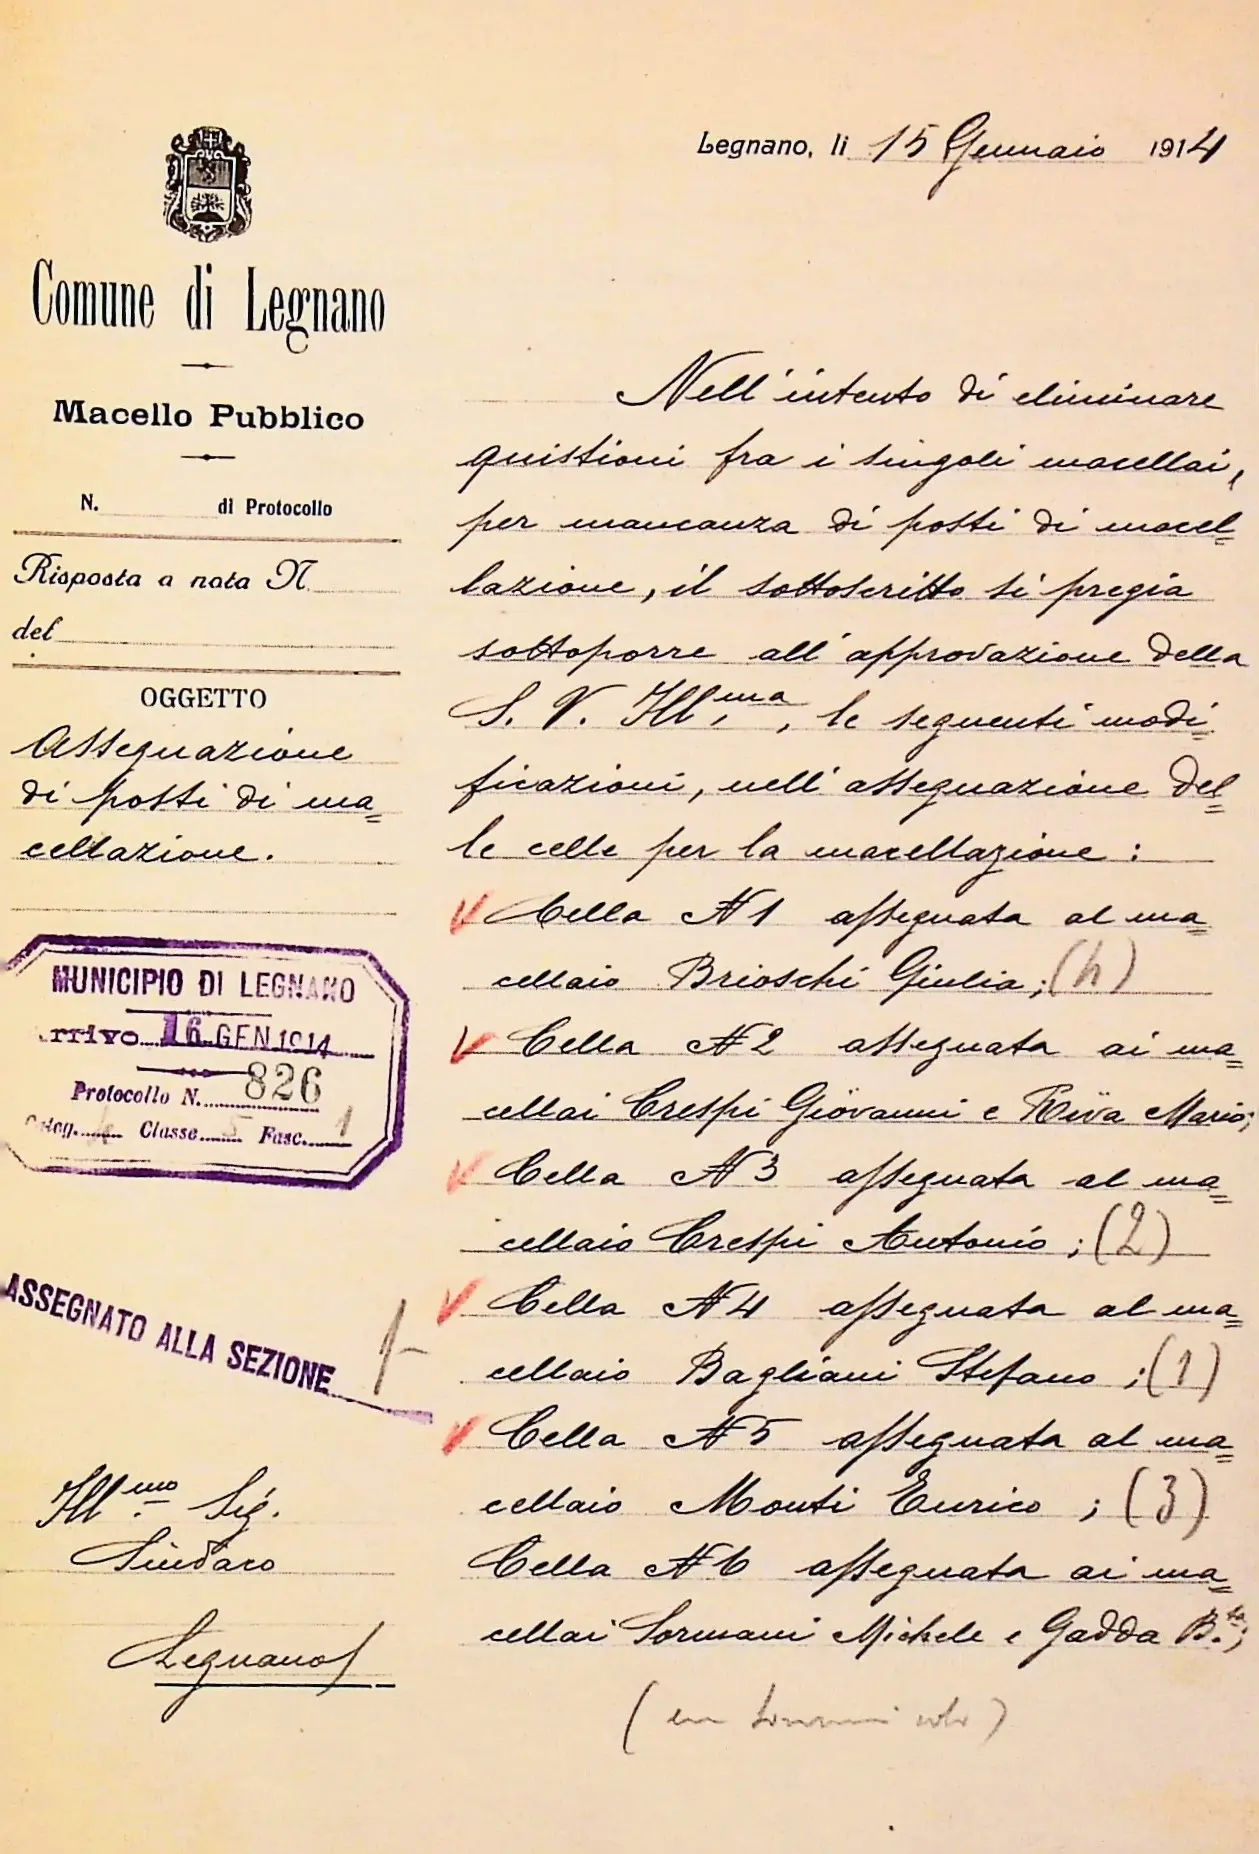 Legnano, li 15 Gennaio 1914
Comune di Legnano
Macello Pubblico
N. di Protocollo
Risposta a nota N.
del
OGGETTO
Assegnazione
di posti di ma=
cellazione.
MUNICIPIO DI LEGNANO
Arrivo 16 GEN 1914
Protocollo N. 826
Categ. 4 Classe 5 Fasc. 1
ASSEGNATO ALLA SEZIONE 1
Ill.mo Sig.
Sindaco
Legnano
Nell'intento di eliminare
quistioni fra i singoli macellai,
per mancanza di posti di macel=
lazione, il sottoscritto si pregia
sottoporre all'approvazione della
S. V. Ill.ma, le seguenti modi=
ficazioni, nell'assegnazione del=
le celle per la macellazione:
Cella N 1 assegnata al ma=
cellaio Brioschi Giulia; (4)
Cella N 2 assegnata ai ma=
cellai Crespi Giovanni e Riva Mario;
Cella N 3 assegnata al ma=
cellaio Crespi Antonio; (2)
Cella N 4 assegnata al ma=
cellaio Bagliani Stefano; (1)
Cella N 5 assegnata al ma=
cellaio Monti Enrico; (3)
Cella N 6 assegnata ai ma=
cellai Sormani Michele e Gadda B.ta;